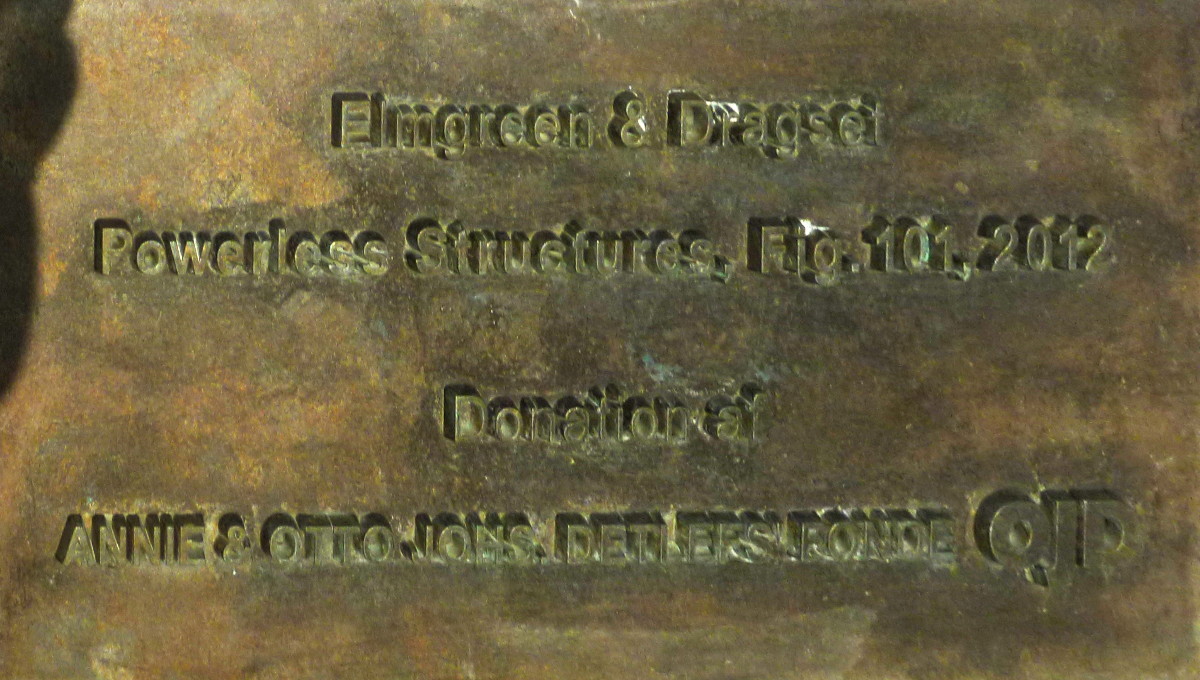 Elmgreen & Dragset
Powerless Structures, Fig. 101, 2012
Donation af
ANNIE & OTTO JOHS. DETLEFS' FONDE OJD